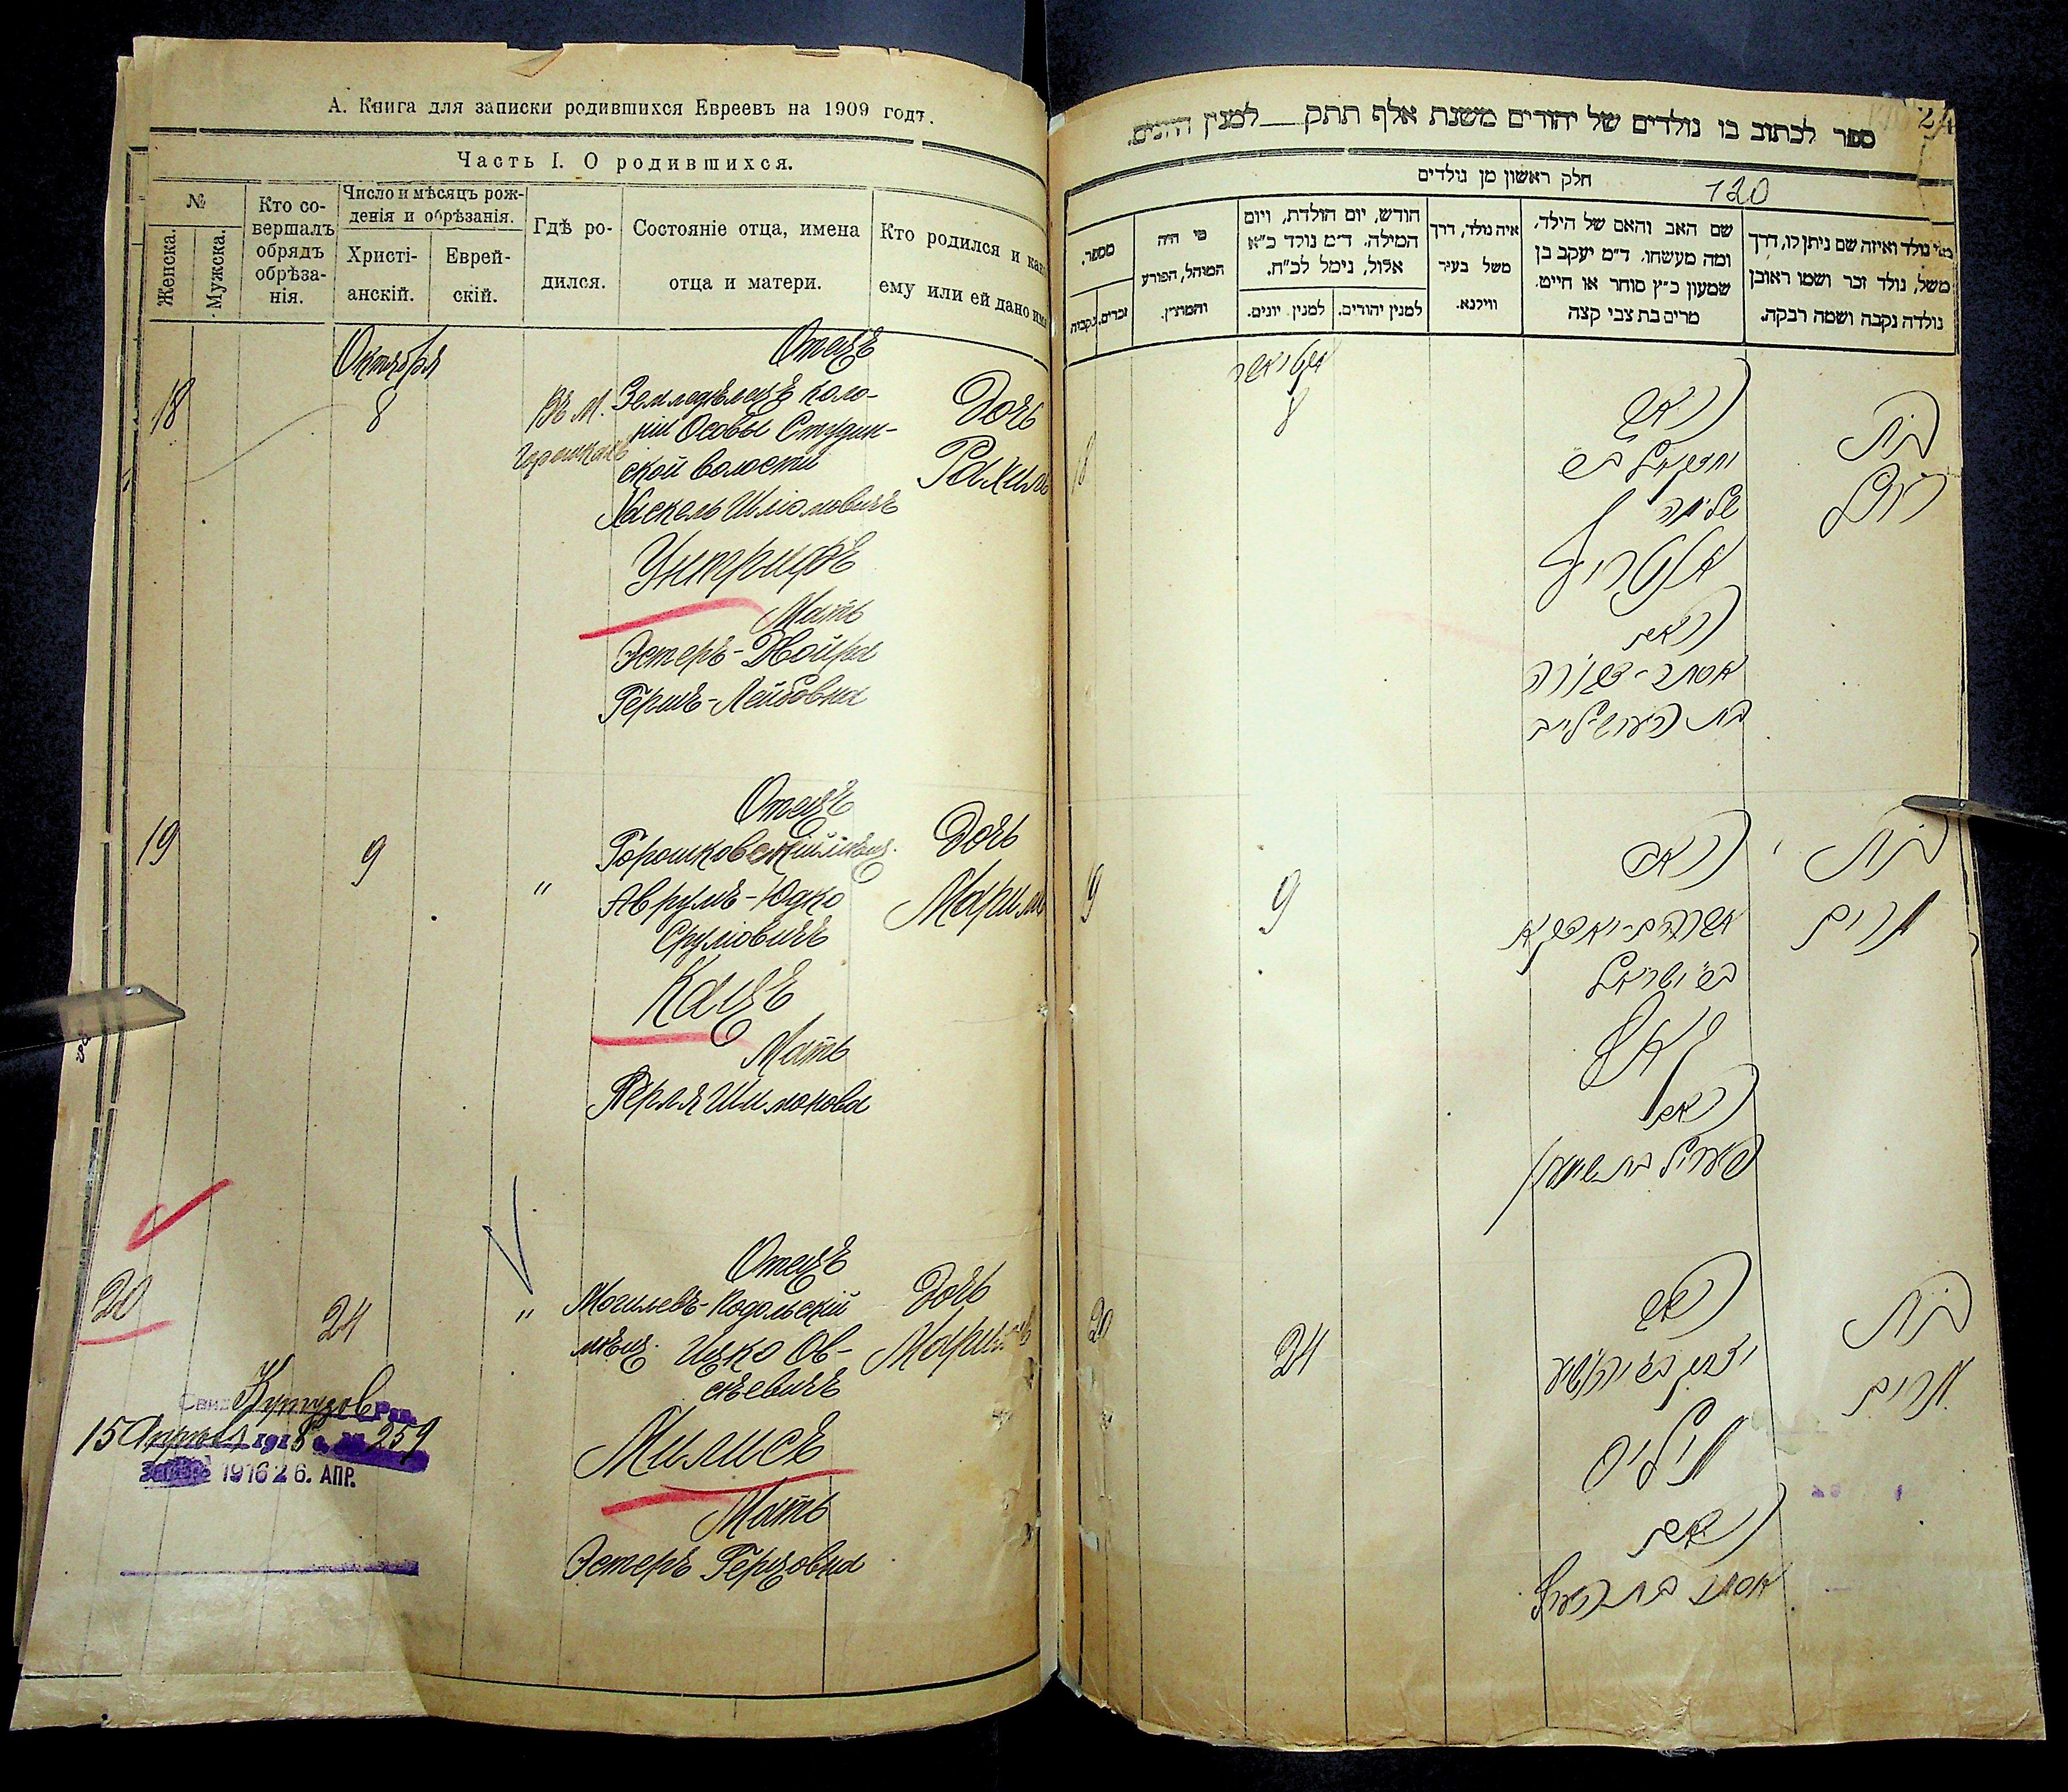 А. Книга для записки родившихся Евреевъ на 1909 годъ.
Часть I. О родившихся.
№
Женска.
Мужска.
Кто со-
вершалъ
обрядъ
обрѣза-
нія.
Число и мѣсяцъ рож-
денія и обрѣзанія.
Христі-
анскій.
Еврей-
скій.
Гдѣ ро-
дился.
Состояніе отца, имена
отца и матери.
Кто родился и какое
ему или ей дано имя
Октября
18
8
Въ м.
Горошкахъ
Отецъ
Земледѣлецъ коло-
ніи Особы Студин-
ской волости
Хаскель Шліомовичъ
Унтрифъ
Мать
Эстеръ-Двойра
Гершъ-Лейбовна
Дочь
Рахиль
19
9
"
Отецъ
Горошковскій мѣщ.
Аврумъ-Юдко
Сруліовичъ
Кацъ
Мать
Перля Шимонова
Дочь
Маримъ
20
24
"
Отецъ
Могилевъ-Подольскій
мѣщ. Ицко Ов-
сѣевичъ
Милисъ
Мать
Эстеръ Герцовна
Дочь
Маримъ
15 Апрѣля 1916 г. № 259
1916 26. АПР.
ספר לכתוב בו נולדים של יהודים משנת אלף תתק למנין היונים.
24
חלק ראשון מן נולדים
120
מי נולד ואיזה שם ניתן לו, דרך
משל, נולד זכר ושמו ראובן
נולדה נקבה ושמה רבקה.
שם האב והאם של הילד,
ומה מעשהו. ד״מ יעקב בן
שמעון כ״ץ סוחר או חייט.
מרים בת צבי קצה
איה נולד, דרך
משל בעיר
ווילנא.
חודש, יום הולדת, ויום
המילה. ד״מ נולד כ״א
אלול, נימל לכ״ח.
למנין יהודים.
למנין יונים.
מי היה
המוהל, הפורע
והמוצץ.
מספר.
זכרים.
נקבות
אקטיאבר
18
8
האב
יחזקאל ב״ש
שלמה
אונטריף
האם
אסתר-דבורה
בת הערש-לייב
בת
רחל
9
9
האב
אברהם-יודקא
ב״ש ישראל
קאץ
האם
פערל בת שמעון
בת
מרים
20
24
האב
יצחק ב״ש יהושע
מיליס
האם
אסתר בת הערץ
בת
מרים